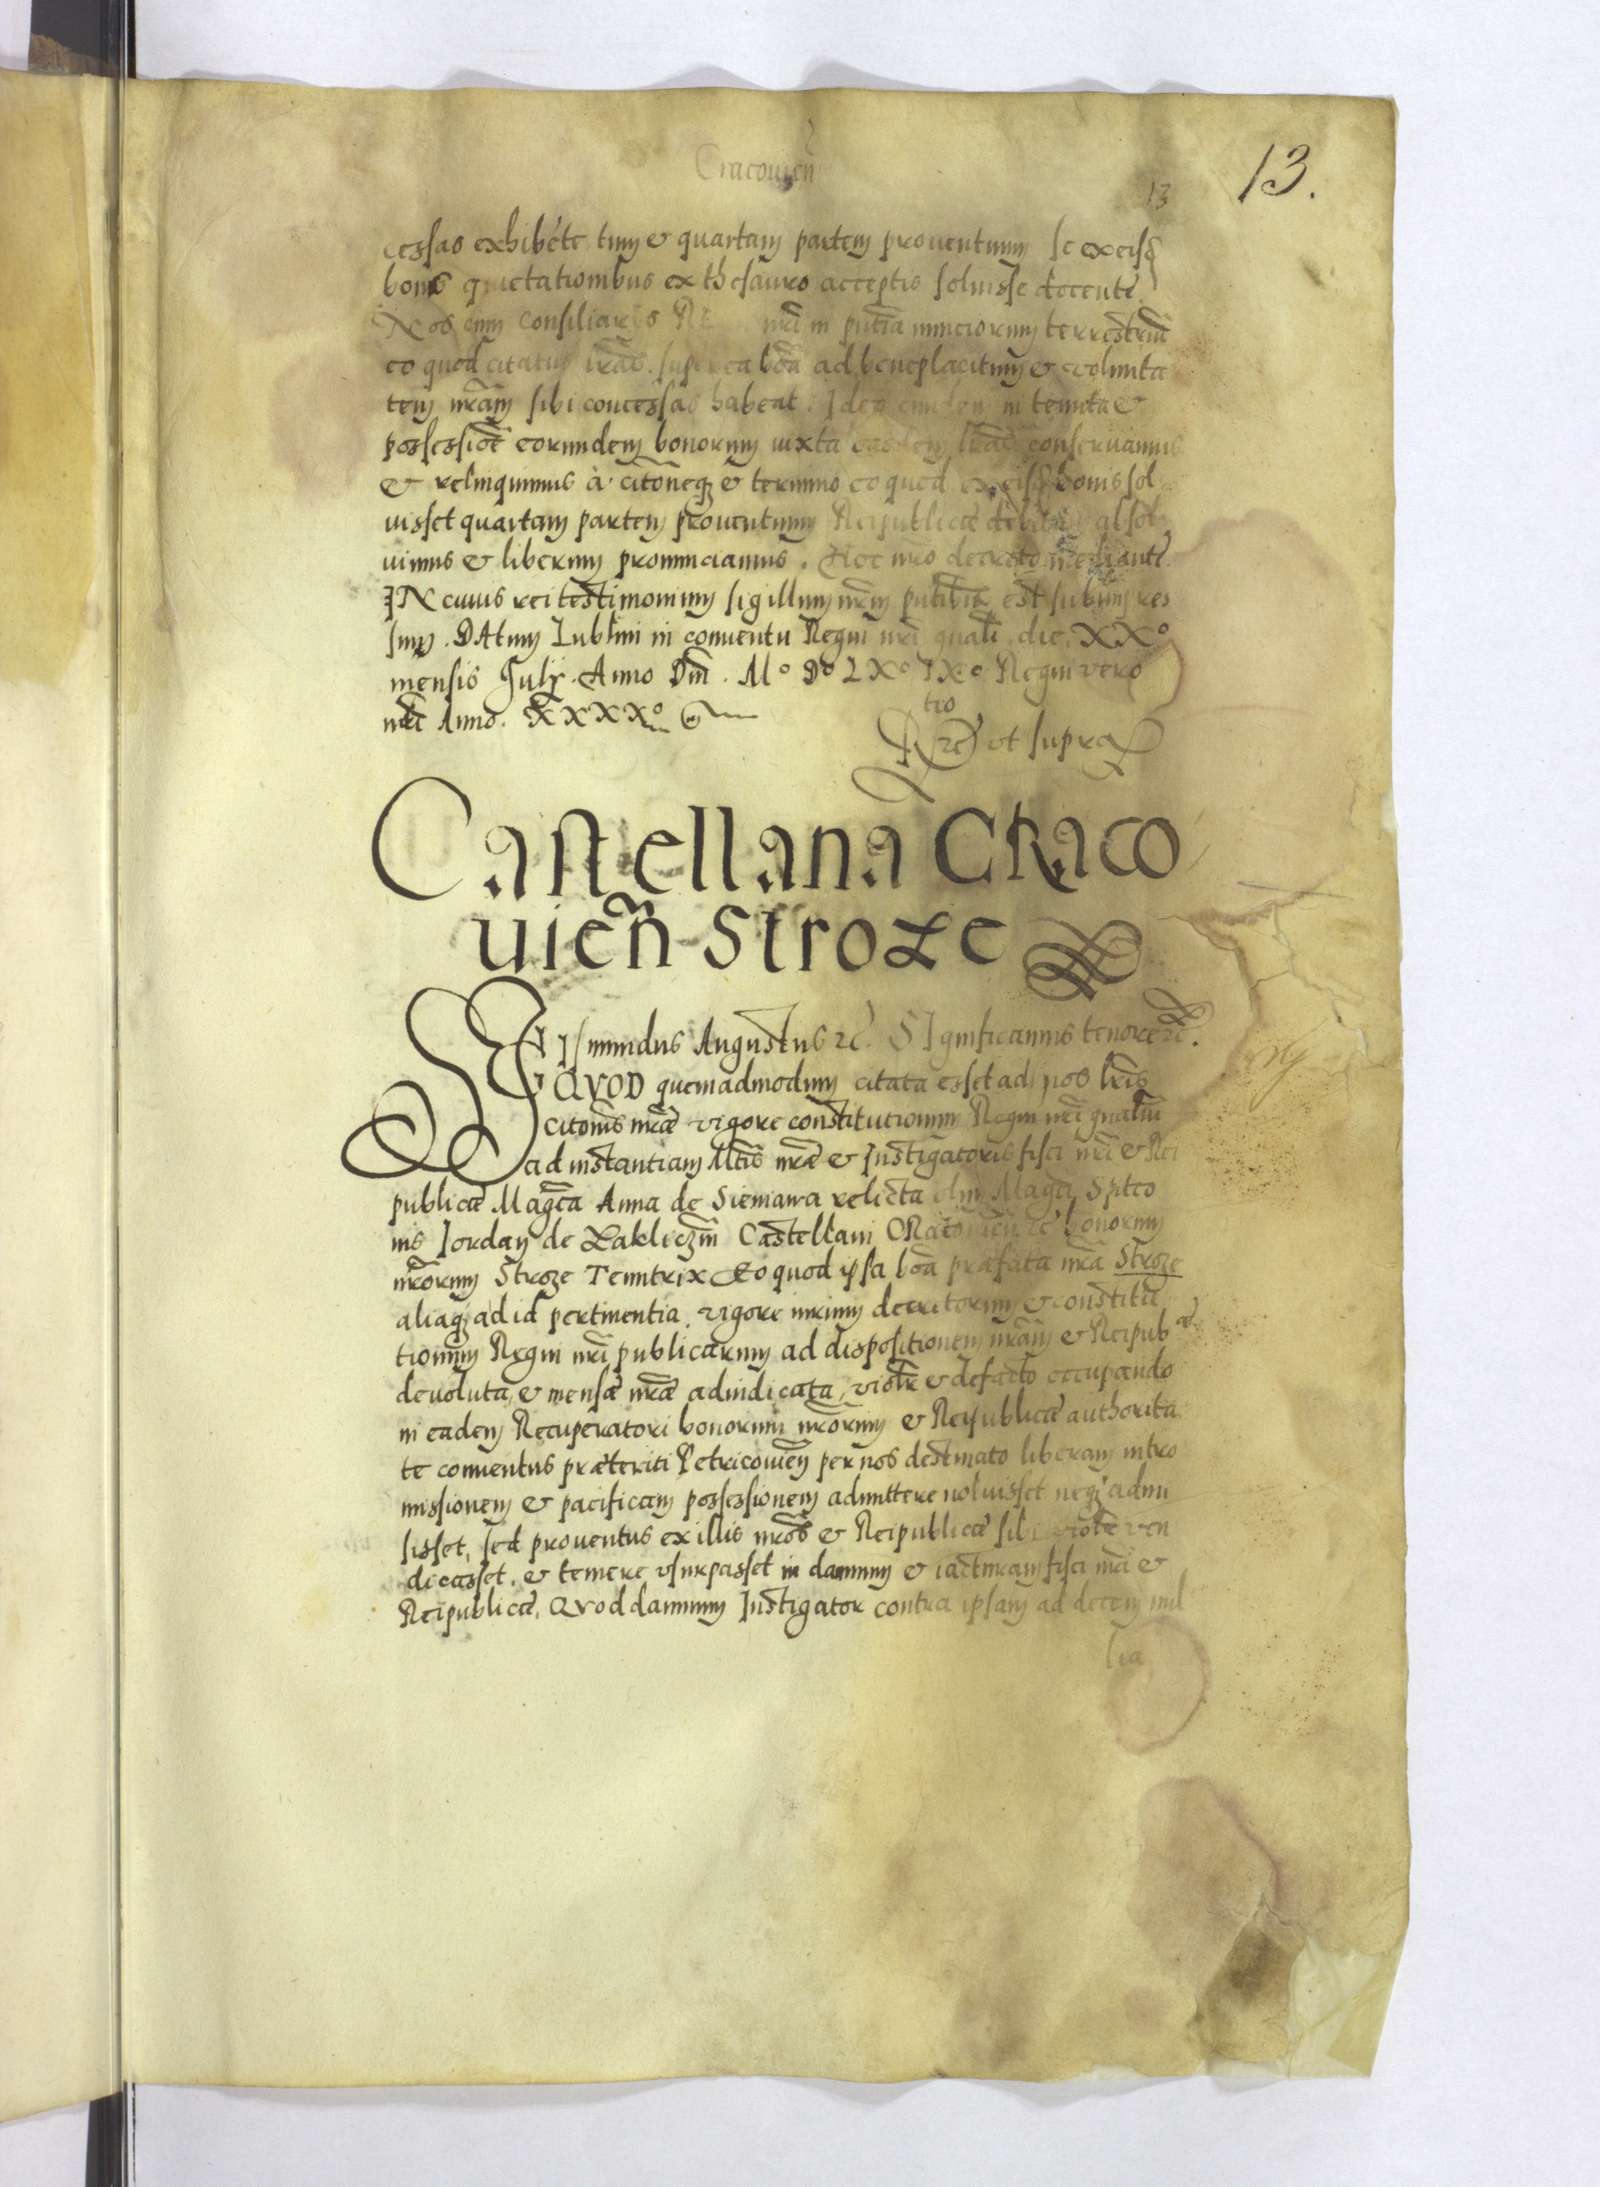 Cracouien̄
13.
13
cessas exhibēte tum & quartam partem prouentuum se ex eisq̃
bonis quietationibus ex thesauro acceptis soluisse docente.
Nos cum consiliarijs nr̃i in pñtia nunciorum terrestriũ
eo quod citatus lr̃as super ea bõa ad beneplacitum & volunta
tem nr̃am sibi concessas habeat. Ideo eundem in tenuta &
possessiõe eorundem bonorum iuxta easdem lr̃as conseruamus
& relinquimus à citõneq; & termino eo quod ex eisq̃ bonis sol
uisset quartam partem prouentuum Reipublicæ debitam absol
uimus & liberum pronunciamus. Hoc nr̃o decreto mediante.
IN cuius rei testimonium sigillum nr̃um pñtibus est subimpres
sum. DAtum Lublini in conuentu Regni nr̃i gnali. die. XXº
mensis Julij. Anno Dñi. Mº Dº LXº IXº Regni vero
nr̃i Anno. XXXXº
tio
Rc̃ vt supra
Castellana CRaco
uien̄ Stroze
SIgismundus Augustus ꝛc̃. SIgnificamus tenore ꝛc̃.
QVOD quemadmodum citata esset ad nos lr̃is
citõnis nr̃æ vigore constitutionum Regni nr̃i gnaliũ
ad instantiam Mtis nr̃æ & Instigatoris fisci nr̃i & Rei
publicæ Magc̃a Anna de Sieniawa relicta olim Magci Spitco
nis Jordan de Zakliczin Castellani CRacouien̄ ꝛc̃ bonorum
nr̃orum Stroze Tenutrix Eo quod ipsa bõa præfata nr̃a Stroze
aliaq; ad id pertinentia. vigore nr̃orum decretorum & constitu
tionum Regni nr̃i publicarum ad dispositionem nr̃am & Reipub^æ
deuoluta, & mensæ nr̃æ adiudicata, violr̃ & defacto occupando
in eadem Recuperatori bonorum nr̃orum & Reipublicæ authorita
te conuentus præteriti Petricouien̄ per nos destinato liberam intro
missionem & pacificam possessionem admittere noluisset neq; admi
sisset, sed prouentus ex illis nr̃os & Reipublicæ sibi violr̃ ven
dicasset. & temere vsurpasset in damnum & iacturam fisci nr̃i &
Reipublicæ. Quod damnum Instigator contra ipsam ad decem mil
lia